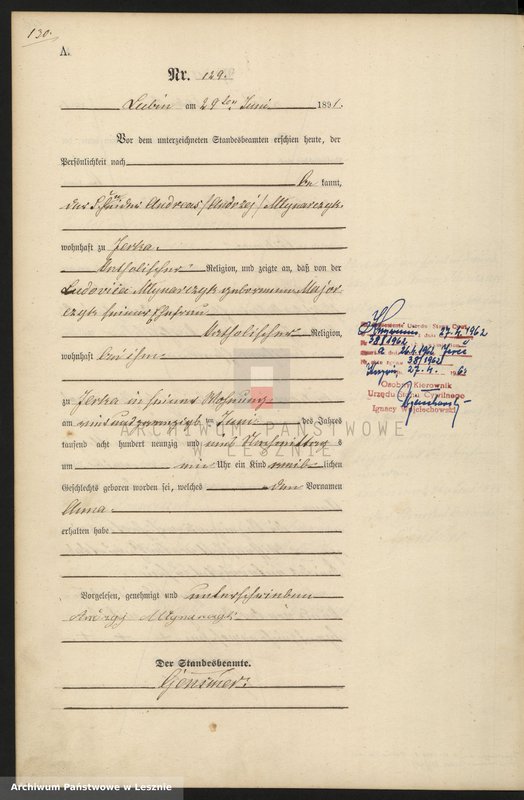 130.
A.
Nr. 129.
Lubin am 29ten Juni 1891.
Vor dem unterzeichneten Standesbeamten erschien heute, der
Persönlichkeit nach
be kannt,
der Schneider Andreas /Andrzej/ Mlynarczyk
wohnhaft zu Jerka
katholischer Religion, und zeigte an, daß von der
Ludovica Mlynarczyk geborenen Major-
czyk seiner Ehefrau
katholischer Religion,
wohnhaft bei ihm
zu Jerka in seiner Wohnung
am ein und zwanzigsten Juni des Jahres
tausend acht hundert neunzig und eins Nachmittags
um Uhr ein Kind weib lichen
Geschlechts geboren worden sei, welches den Vornamen
Anna
erhalten habe
Vorgelesen, genehmigt und unterschrieben
Andrzej Mlynarczyk
Der Standesbeamte.
27.4.1962
38/1962
38/1962
27.4.
Osoba Kierownik
Urzędu Stanu Cywilnego
Ignacy Wojciechowski
ARCHIWUM PAŃSTWOWE
W LESZNIE
Archiwum Państwowe w Lesznie